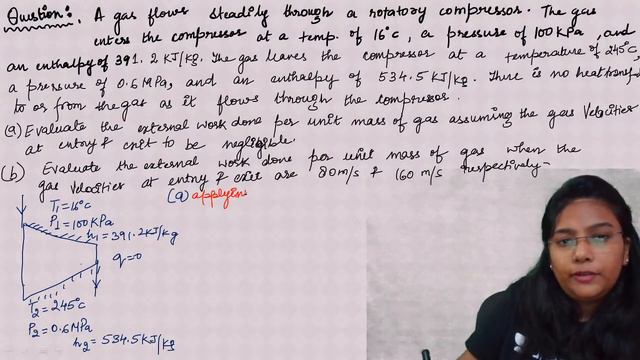 Question:- A gas flows steadily through a rotatory compressor. The gas
enters the compressor at a temp. of 16°c, a pressure of 100 KPa, and
an enthalpy of 391.2 KJ/Kg. The gas leaves the compressor at a temperature of 245°c,
a pressure of 0.6 MPa, and an enthalpy of 534.5 KJ/Kg. There is no heat transf
to or from the gas as it flows through the compressor.
(a) Evaluate the external work done per unit mass of gas assuming the gas velocities
at entry & exit to be negligible.
(b) Evaluate the external work done per unit mass of gas when the
gas velocities at entry & exit are 80 m/s & 160 m/s respectively-
T1 = 16°c
P1 = 100 KPa
h1 = 391.2 KJ/Kg
q = 0
T2 = 245°c
P2 = 0.6 MPa
h2 = 534.5 KJ/Kg
(a) applyin